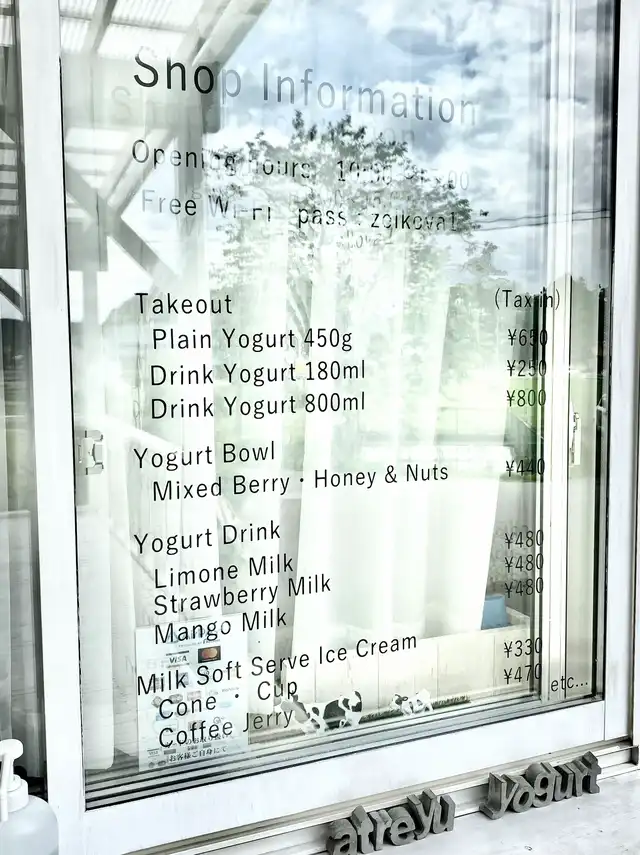 Shop Information
Opening hours 10:00
Free Wi-Fi pass :
Takeout (Tax in)
Plain Yogurt 450g ¥650
Drink Yogurt 180ml ¥250
Drink Yogurt 800ml ¥800
Yogurt Bowl
Mixed Berry・Honey & Nuts ¥440
Yogurt Drink
Limone Milk ¥480
Strawberry Milk ¥480
Mango Milk ¥480
Milk Soft Serve Ice Cream
Cone ・ Cup ¥330
Coffee Jerry ¥470
etc...
VISA
お客様ご自身にて
atreyu yogurt